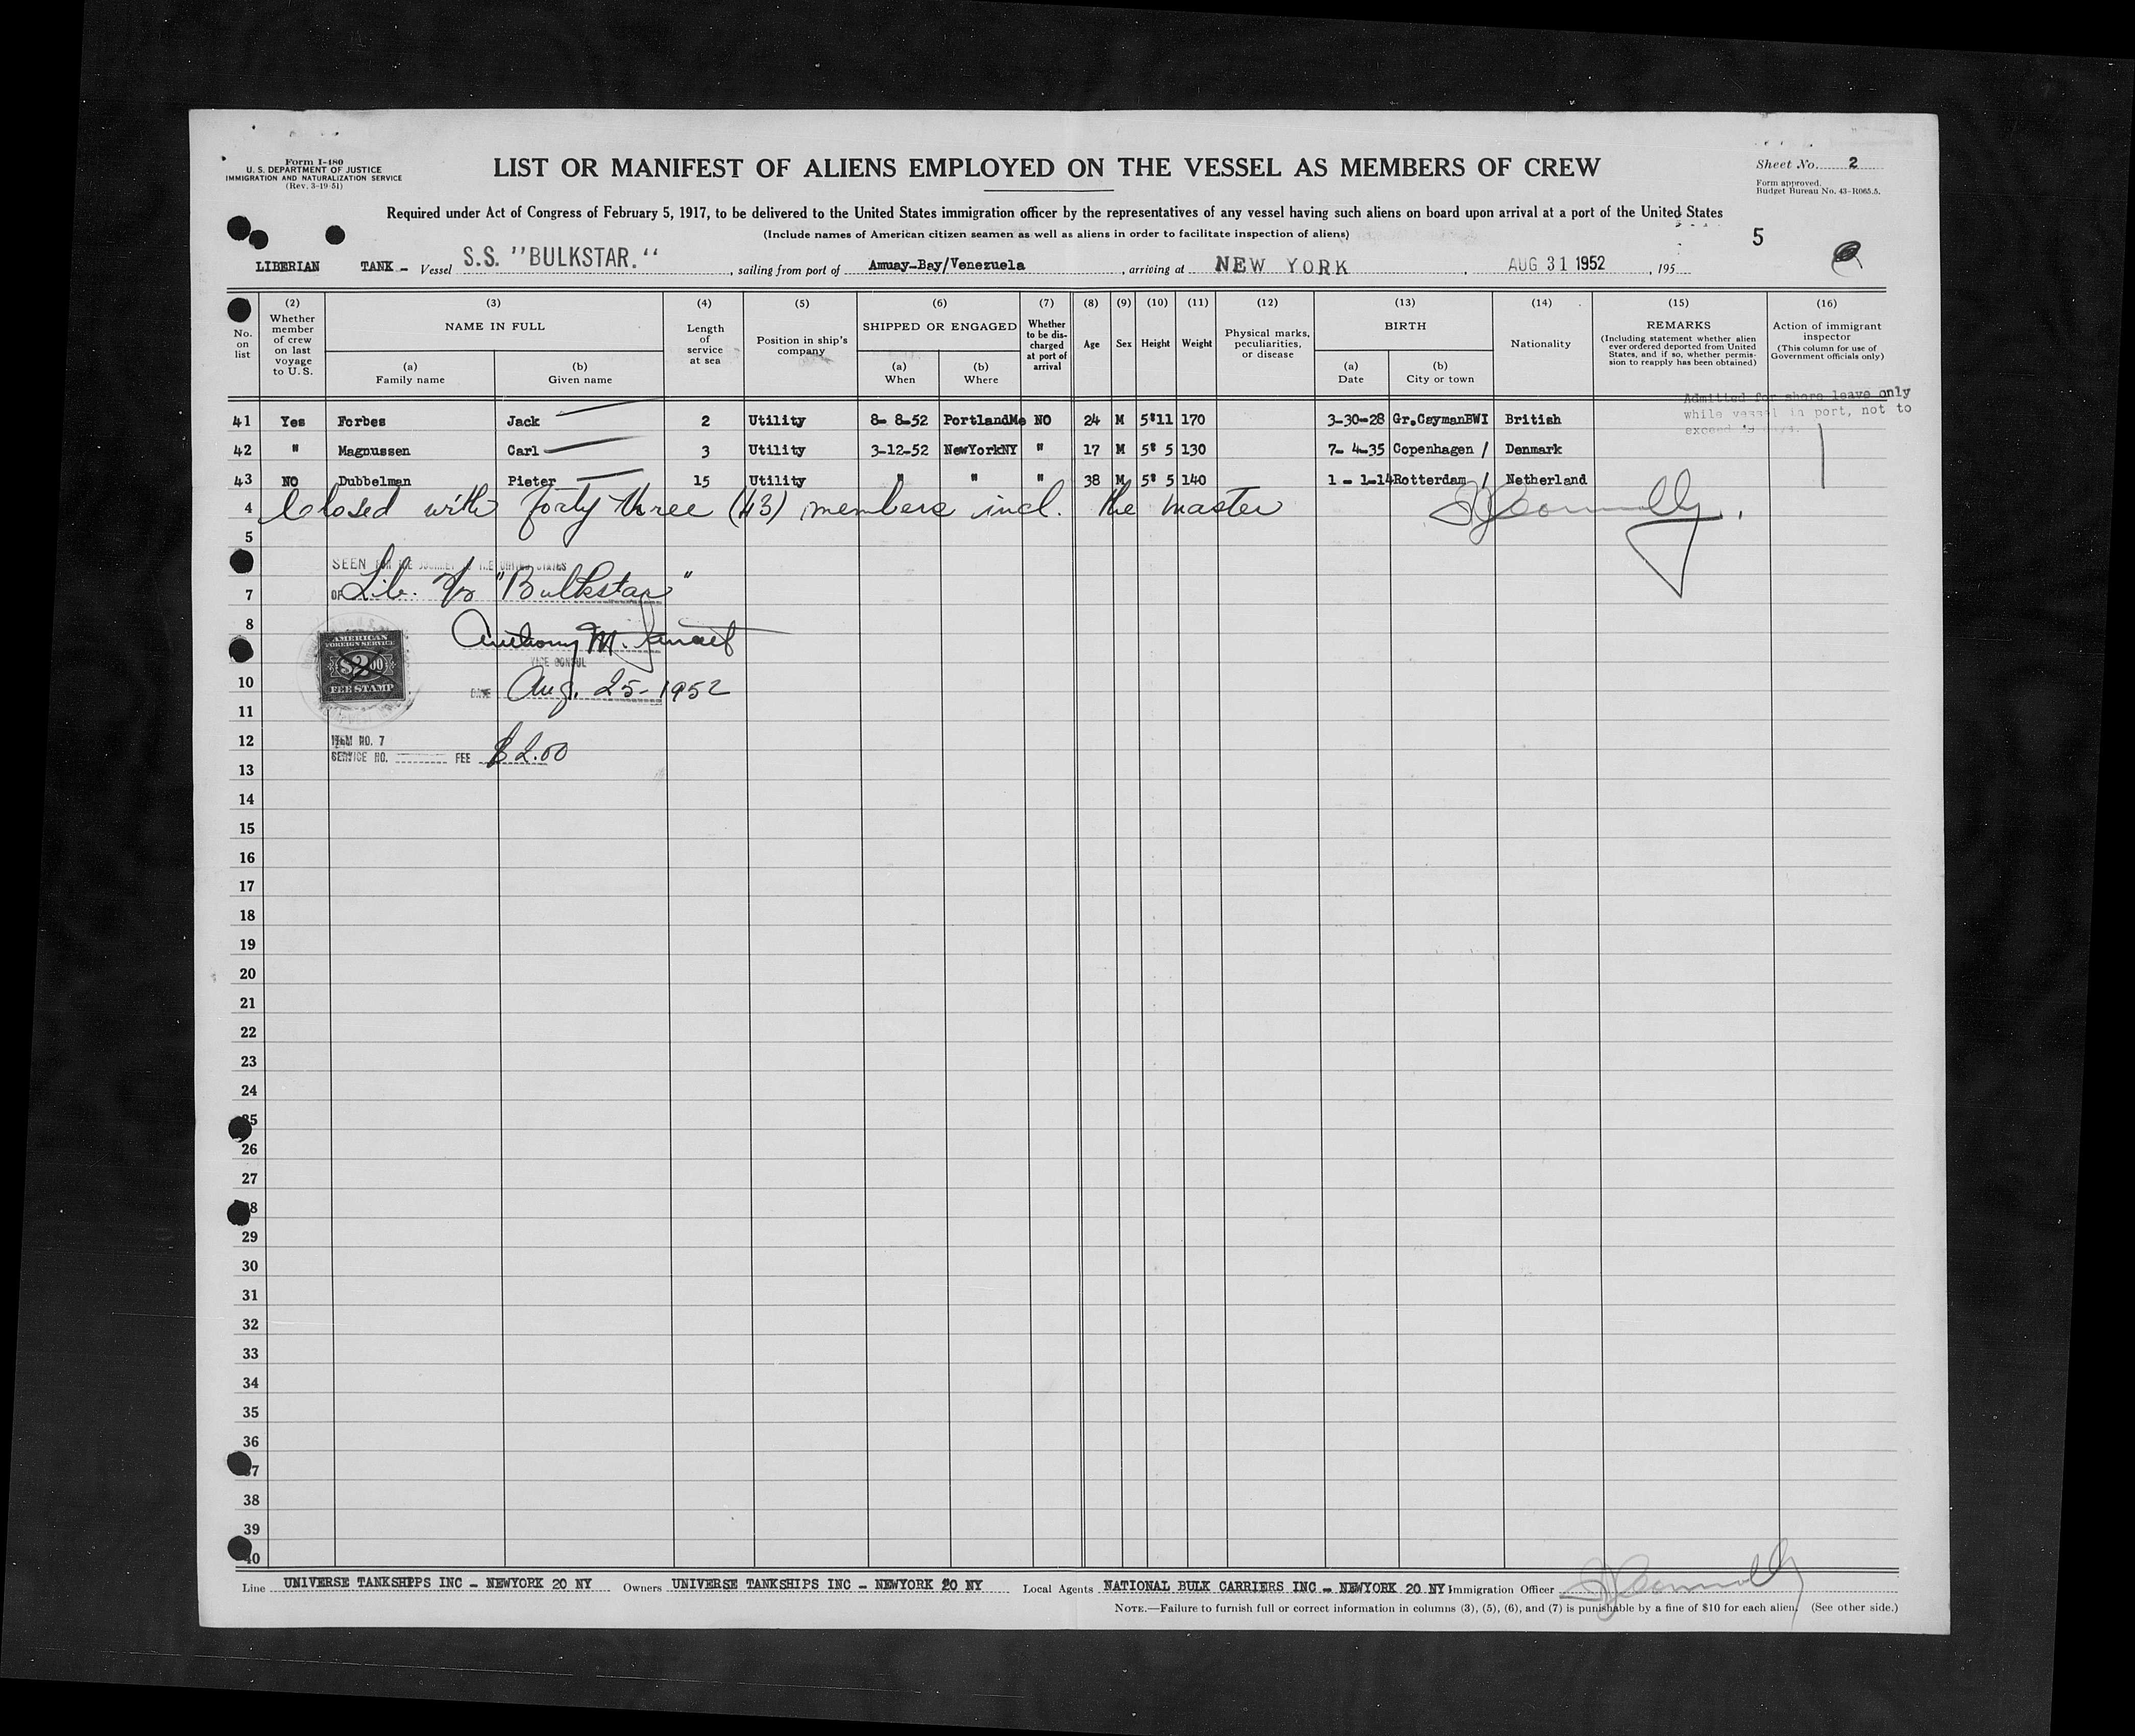 Form I-480
U. S. DEPARTMENT OF JUSTICE
IMMIGRATION AND NATURALIZATION SERVICE
(Rev. 3-19-51)
LIST OR MANIFEST OF ALIENS EMPLOYED ON THE VESSEL AS MEMBERS OF CREW
Sheet No. 2
Form approved.
Budget Bureau No. 43-R065.5.
Required under Act of Congress of February 5, 1917, to be delivered to the United States immigration officer by the representatives of any vessel having such aliens on board upon arrival at a port of the United States
(Include names of American citizen seamen as well as aliens in order to facilitate inspection of aliens)
5
LIBERIAN TANK - Vessel S.S. "BULKSTAR." , sailing from port of Amuay-Bay/Venezuela , arriving at NEW YORK , AUG 31 1952 , 195
No. on list
(2) Whether member of crew on last voyage to U. S.
(3) NAME IN FULL
(a) Family name
(b) Given name
(4) Length of service at sea
(5) Position in ship's company
(6) SHIPPED OR ENGAGED
(a) When
(b) Where
(7) Whether to be discharged at port of arrival
(8) Age
(9) Sex
(10) Height
(11) Weight
(12) Physical marks, peculiarities, or disease
(13) BIRTH
(a) Date
(b) City or town
(14) Nationality
(15) REMARKS
(Including statement whether alien ever ordered deported from United States, and if so, whether permission to reapply has been obtained)
(16) Action of immigrant inspector
(This column for use of Government officials only)
Admitted for shore leave only
while vessel in port, not to
exceed 29 days.
41 Yes Forbes Jack 2 Utility 8- 8-52 PortlandMe NO 24 M 5'11 170 3-30-28 Gr.CaymanBWI British
42 " Magnussen Carl 3 Utility 3-12-52 NewYorkNY " 17 M 5' 5 130 7- 4-35 Copenhagen / Denmark
43 NO Dubbelman Pieter 15 Utility " " " 38 M 5' 5 140 1 - 1-14 Rotterdam / Netherland
4 Closed with forty three (43) members incl. the master
5
SEEN FOR THE JOURNEY TO THE UNITED STATES
7 OF Lib. "Bulkstar"
8
AMERICAN
FOREIGN SERVICE
$2.00
FEE STAMP
Anthony M.
VICE CONSUL
10 DATE Aug. 25-1952
11
12 ITEM NO. 7
SERVICE NO. FEE $2.00
13
14
15
16
17
18
19
20
21
22
23
24
25
26
27
28
29
30
31
32
33
34
35
36
37
38
39
40
Line UNIVERSE TANKSHIPS INC - NEWYORK 20 NY Owners UNIVERSE TANKSHIPS INC - NEWYORK 20 NY Local Agents NATIONAL BULK CARRIERS INC - NEWYORK 20 NY Immigration Officer
NOTE.—Failure to furnish full or correct information in columns (3), (5), (6), and (7) is punishable by a fine of $10 for each alien. (See other side.)